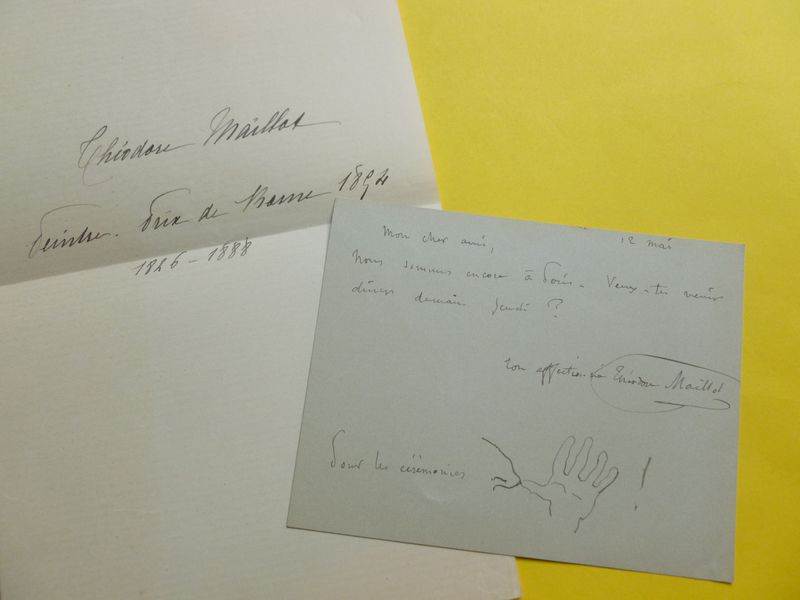 Théodore Maillot
Peintre. Prix de Rome 1854
1826 - 1888
12 mai
Mon cher ami,
Nous sommes encore à Paris. Veux-tu venir
dîner demain jeudi ?
Ton affectionné Théodore Maillot
Pour les cérémonies !